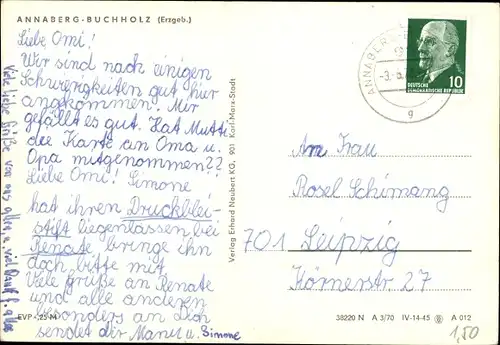 ANNABERG-BUCHHOLZ (Erzgeb.)
Liebe Omi!
Wir sind nach einigen
Schwierigkeiten gut hier
angekommen. Mir
gefällt es gut. Hat Mutti
die Karte an Oma u.
Opa mitgenommen??
Liebe Omi! Simone
hat ihren Druckblei-
stift liegenlassen bei
Renate bringe ihn
doch bitte mit
Viele grüße an Renate
und alle anderen
besonders an Dich
sendet dir Manu u. Simone
Viele liebe Grüße von uns allen, u. viel Dank f.
EVP -,25 M
Verlag Erhard Neubert KG, 901 Karl-Marx-Stadt
ANNABERG
-3.
g
10
DEUTSCHE
DEMOKRATISCHE REPUBLIK
An Frau
Rosel Schimang
701 Leipzig
Körnerstr 27
38220 N A 3/70 IV-14-45 A 012
1,50